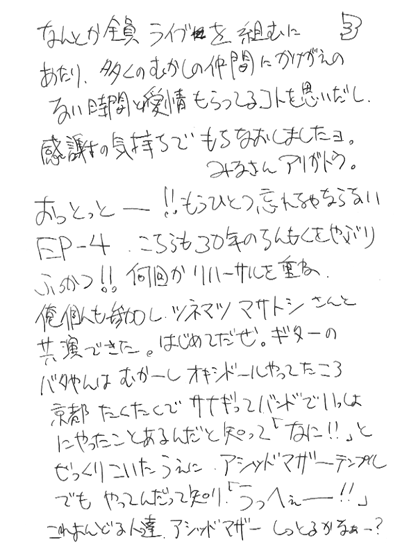 ③
なんとか全員 ライブを 組むに
あたり、多くのむかしの仲間にかけがえの
ない時間と愛情もらってるコトを思いだし、
感謝の気持ちでもちなおしましたヨ。
みなさん アリガトウ。
おっとっとー!!もうひとつ、忘れちゃならない
EP-4. こちらも30年のちんもくをやぶり
ふっかつ!! 何回かリハーサルを重ね、
俺個人も参加し、ツネマツ マサトシ さんと
共演できた。はじめてだぜ。ギターの
バタやんは むかーし オキシドールやってたころ
京都 たくたくで サナギってバンドでいっしょ
にやったことあるんだと知って「なに!!」と
びっくりこいたうえに、アシッドマザーテンプル
でも やってんだって知り、「うっへぇー!!」
これよんどる人達、アシッドマザー しっとるかなぁー?